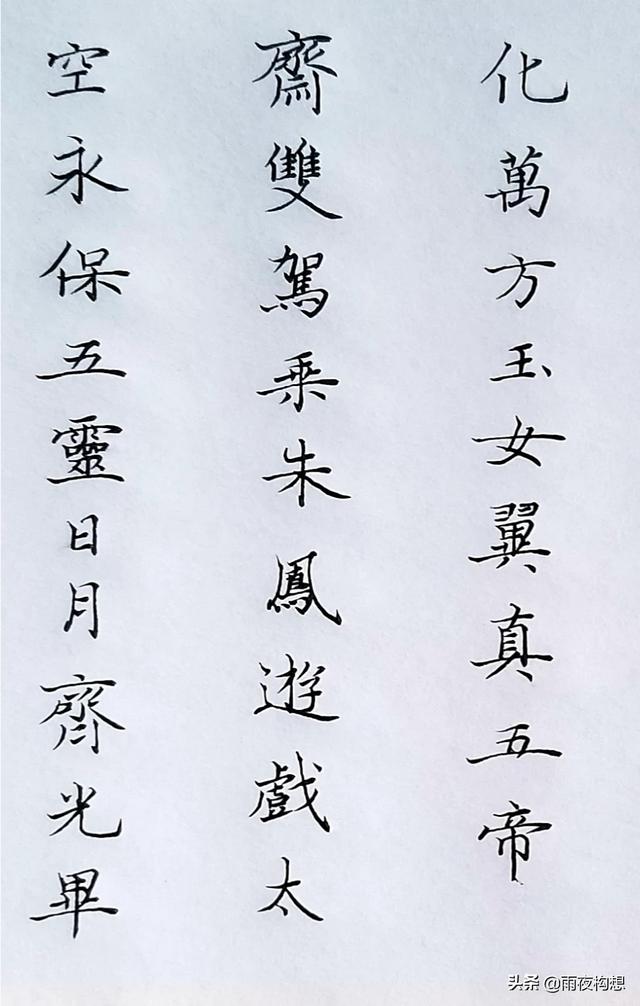 化萬方玉女翼真五帝
齋雙駕乘朱鳳遊戲太
空永保五靈日月齊光畢
头条 @雨夜构想